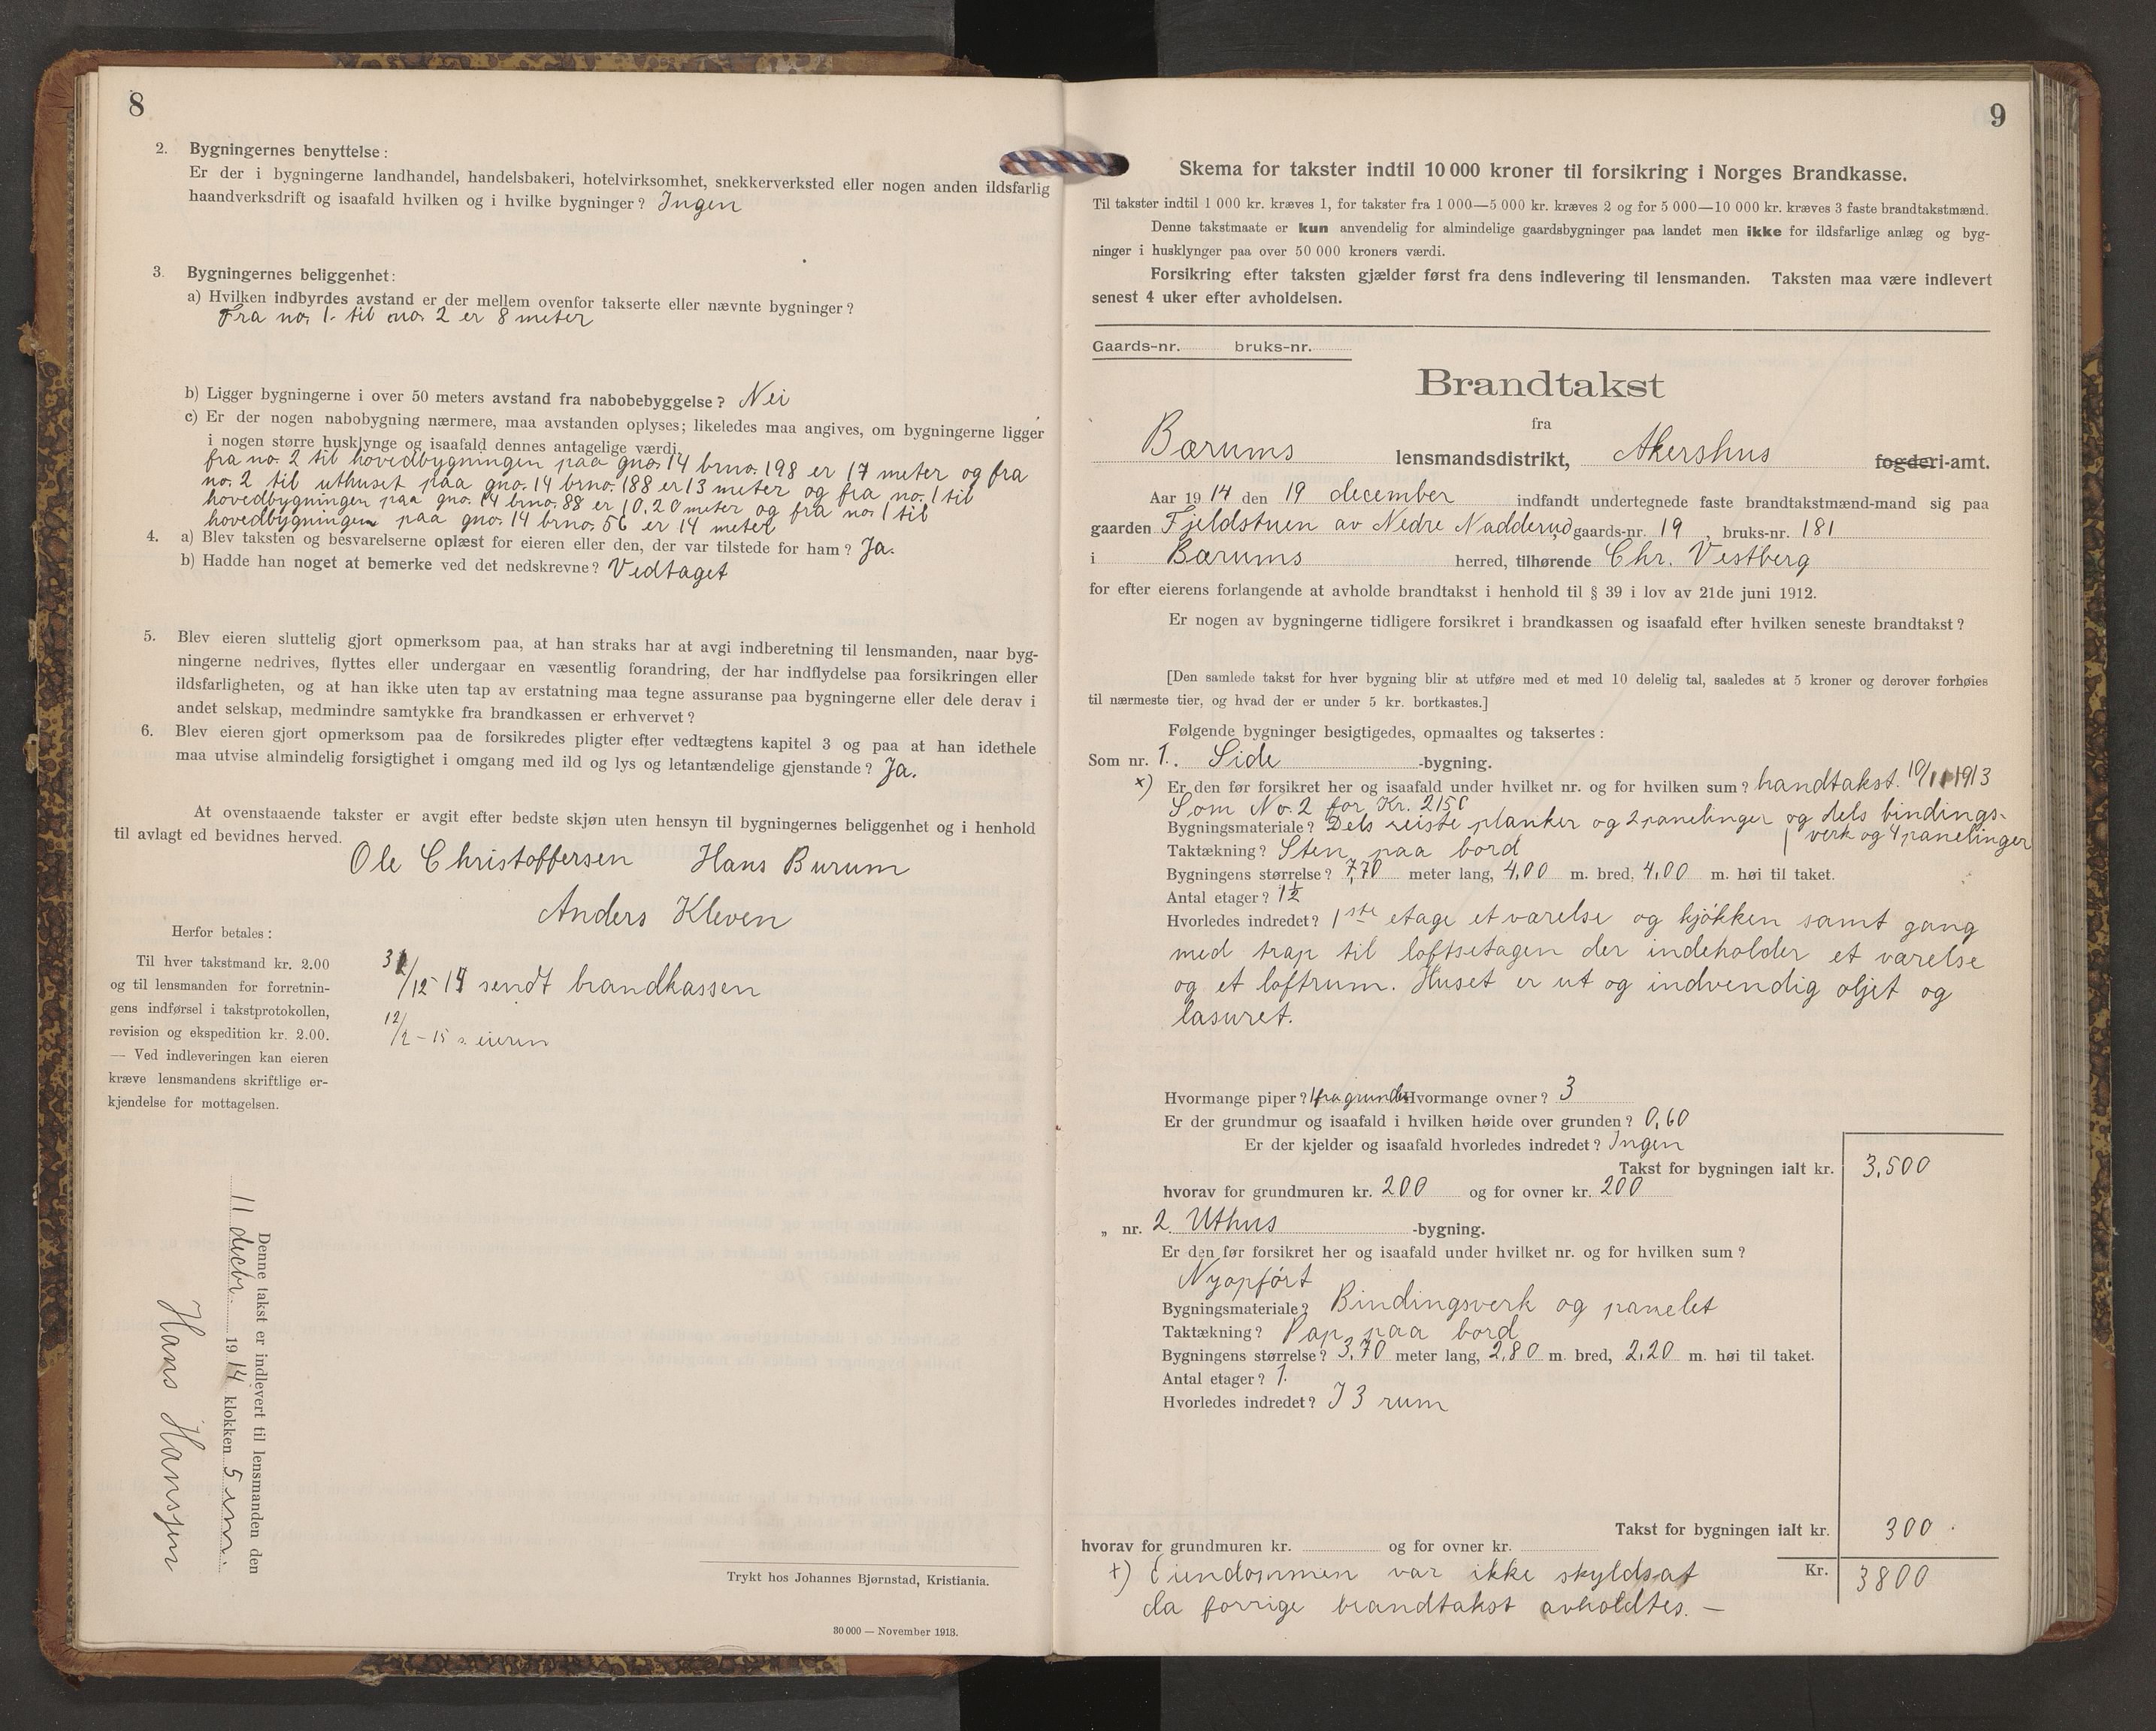 8
2. Bygningernes benyttelse:
Er der i bygningerne landhandel, handelsbakeri, hotelvirksomhet, snekkerverksted eller nogen anden ildsfarlig
haandverksdrift og isaafald hvilken og i hvilke bygninger? Ingen
3. Bygningernes beliggenhet:
a) Hvilken indbyrdes avstand er der mellem ovenfor takserte eller nævnte bygninger?
Fra no. 1. til no. 2 er 8 meter
b) Ligger bygningerne i over 50 meters avstand fra nabobebyggelse? Nei
c) Er der nogen nabobygning nærmere, maa avstanden oplyses; likeledes maa angives, om bygningerne ligger
i nogen større husklynge og isaafald dennes antagelige værdi.
fra no. 2 til hovedbygningen paa gno. 14 brno. 198 er 17 meter og fra
no. 2 til uthuset paa gno. 14 brno. 188 er 13 meter og fra no. 1 til
hovedbygningen paa gno. 14 brno. 88 er 10.20 meter og fra no 1 til
hovedbygningen paa gno. 14 brno. 56 er 14 meter
4. a) Blev taksten og besvarelserne oplæst for eieren eller den, der var tilstede for ham? Ja.
b) Hadde han noget at bemerke ved det nedskrevne? Vedtaget
5. Blev eieren sluttelig gjort opmerksom paa, at han straks har at avgi indberetning til lensmanden, naar byg-
ningerne nedrives, flyttes eller undergaar en væsentlig forandring, der har indflydelse paa forsikringen eller
ildsfarligheten, og at han ikke uten tap av erstatning maa tegne assuranse paa bygningerne eller dele derav i
andet selskap, medmindre samtykke fra brandkassen er erhvervet?
6. Blev eieren gjort opmerksom paa de forsikredes pligter efter vedtægtens kapitel 3 og paa at han idethele
maa utvise almindelig forsigtighet i omgang med ild og lys og letantændelige gjenstande? Ja.
At ovenstaaende takster er avgit efter bedste skjøn uten hensyn til bygningernes beliggenhet og i henhold
til avlagt ed bevidnes herved.
Ole Christoffersen Hans Burum
Anders Kleven
Herfor betales:
Til hver takstmand kr. 2.00
og til lensmanden for forretnin-
gens indførsel i takstprotokollen,
revision og ekspedition kr. 2.00.
— Ved indleveringen kan eieren
kræve lensmandens skriftlige er-
kjendelse for mottagelsen.
31/12-14 sendt brandkassen
12/2 - 15 s. eieren
Denne takst er indlevert til lensmanden den
11 decbr. 1914 klokken 5 em.
Hans Hansen
Trykt hos Johannes Bjørnstad, Kristiania.
30 000 — November 1913.
9
Skema for takster indtil 10 000 kroner til forsikring i Norges Brandkasse.
Til takster indtil 1 000 kr. kræves 1, for takster fra 1 000—5 000 kr. kræves 2 og for 5 000—10 000 kr. kræves 3 faste brandtakstmænd.
Denne takstmaate er kun anvendelig for almindelige gaardsbygninger paa landet men ikke for ildsfarlige anlæg og byg-
ninger i husklynger paa over 50 000 kroners værdi.
Forsikring efter taksten gjælder først fra dens indlevering til lensmanden. Taksten maa være indlevert
senest 4 uker efter avholdelsen.
Gaards-nr. bruks-nr.
Brandtakst
fra
Bærums lensmandsdistrikt, Akershus fogderi-amt.
Aar 1914 den 19 december indfandt undertegnede faste brandtakstmænd-mand sig paa
gaarden Fjeldstuen av Nedre Nadderud, gaards-nr. 19, bruks-nr. 181
i Bærums herred, tilhørende Chr. Vestberg
for efter eierens forlangende at avholde brandtakst i henhold til § 39 i lov av 21de juni 1912.
Er nogen av bygningerne tidligere forsikret i brandkassen og isaafald efter hvilken seneste brandtakst?
[Den samlede takst for hver bygning blir at utføre med et med 10 delelig tal, saaledes at 5 kroner og derover forhøies
til nærmeste tier, og hvad der er under 5 kr. bortkastes.]
Følgende bygninger besigtigedes, opmaaltes og taksertes:
Som nr. 1. Side -bygning.
x) Er den før forsikret her og isaafald under hvilket nr. og for hvilken sum? brandtakst. 10/11 1913
Som No. 2 for Kr. 2150
Bygningsmateriale? Dels reiste planker og 2 panelinger og dels bindings-
verk og 4 panelinger
Taktækning? Sten paa bord
Bygningens størrelse? 7,70 meter lang, 4,00 m. bred, 4,00 m. høi til taket.
Antal etager? 1½
Hvorledes indredet? 1ste etage et værelse og kjøkken samt gang
med trap til loftsetagen der indeholder et værelse
og et loftrum. Huset er ut og indvendig oljet og
lasuret.
Hvormange piper? 1 fra grunden Hvormange ovner? 3
Er der grundmur og isaafald i hvilken høide over grunden? 0,60
Er der kjelder og isaafald hvorledes indredet? Ingen
Takst for bygningen ialt kr. 3,500
hvorav for grundmuren kr. 200 og for ovner kr. 200
„ nr. 2. Uthus -bygning.
Er den før forsikret her og isaafald under hvilket nr. og for hvilken sum?
Nyopført
Bygningsmateriale? Bindingsverk og panelet
Taktækning? Pap paa bord
Bygningens størrelse? 3,70 meter lang, 2,80 m. bred, 2,20 m. høi til taket.
Antal etager? 1.
Hvorledes indredet? I 3 rum
Takst for bygningen ialt kr. 300.
hvorav for grundmuren kr. og for ovner kr.
Kr. 3800
+) Eiendommen var ikke skyldsat
da forrige brandtakst avholdtes. —